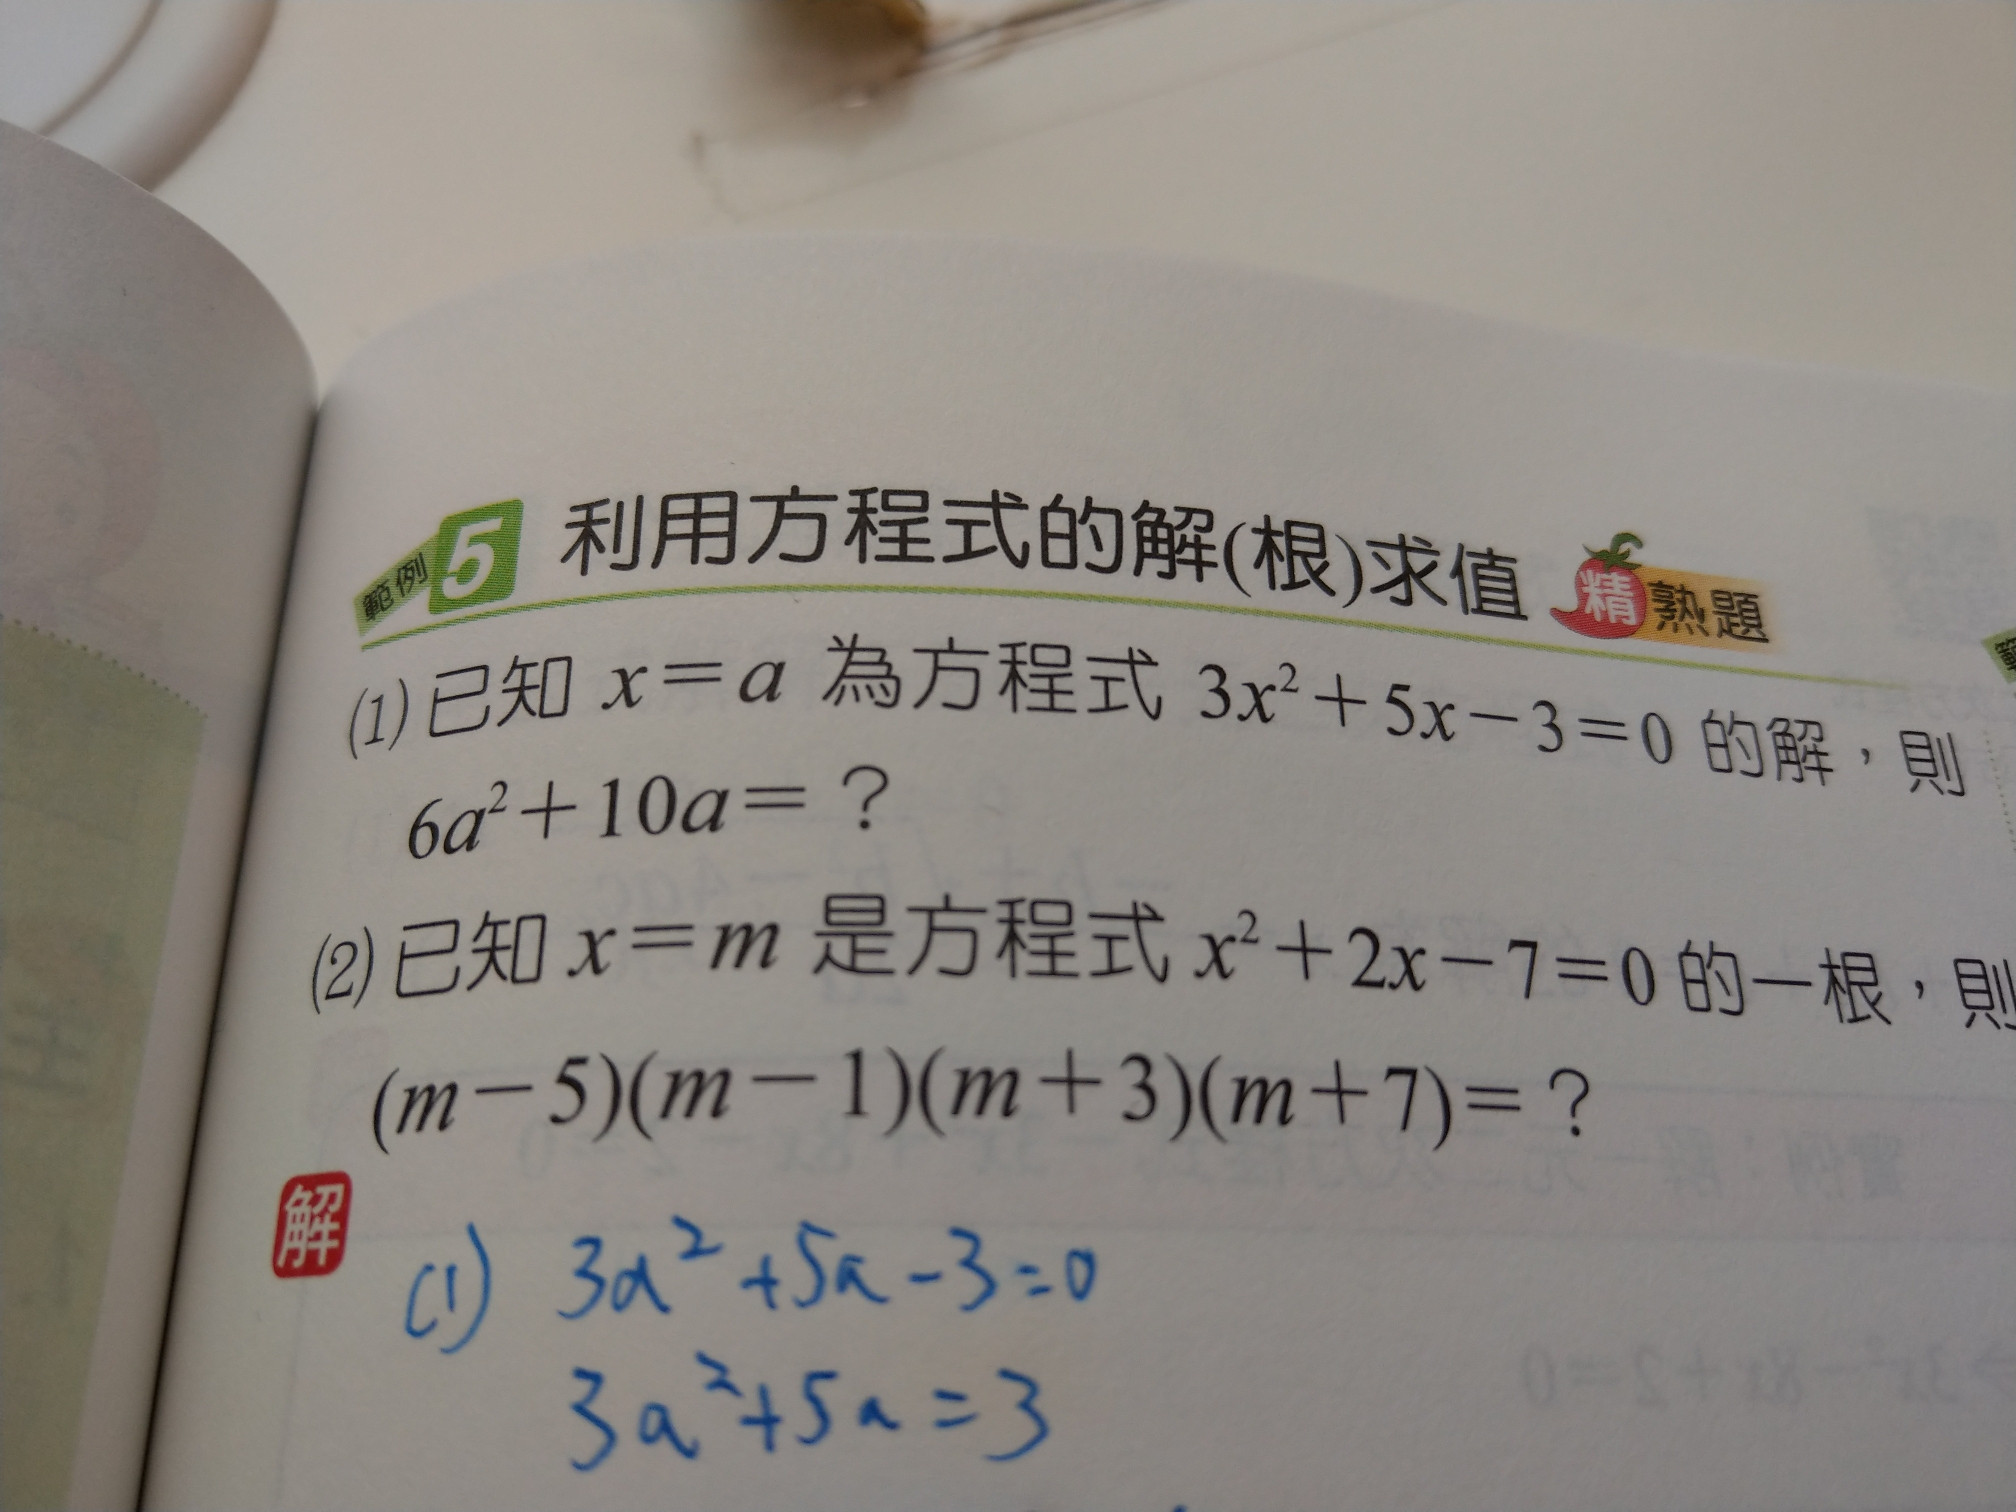 範例 5 利用方程式的解(根)求值 精熟題
(1) 已知 x=a 為方程式 3x²+5x−3=0 的解，則
6a²+10a=？
(2) 已知 x=m 是方程式 x²+2x−7=0 的一根，則
(m−5)(m−1)(m+3)(m+7)=？
解
(1) 3a²+5a-3=0
3a²+5a=3